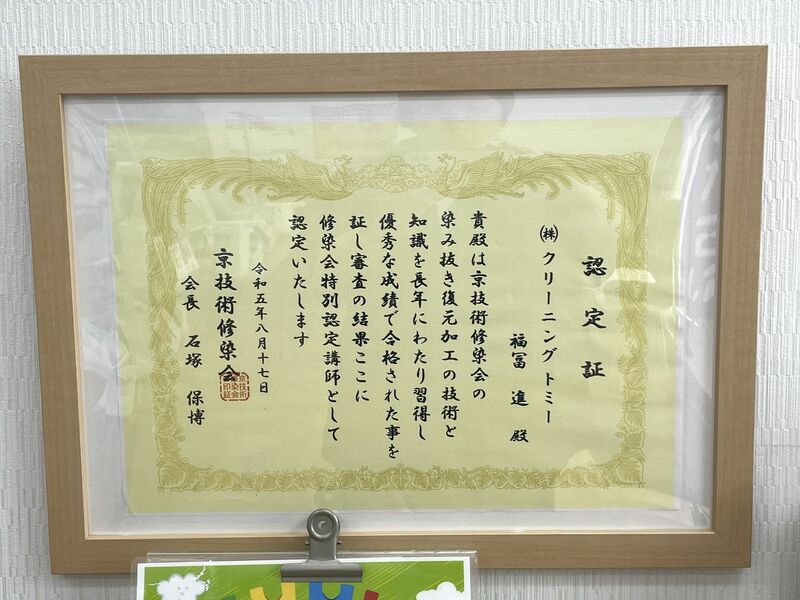 認定証
㈱クリーニングトミー
福冨 進 殿
貴殿は京技術修染会の
染み抜き復元加工の技術と
知識を長年にわたり習得し
優秀な成績で合格された事を
証し審査の結果ここに
修染会特別認定講師として
認定いたします
令和五年八月十七日
京技術修染会
会長 石塚 保博
京技術
修染会
印証